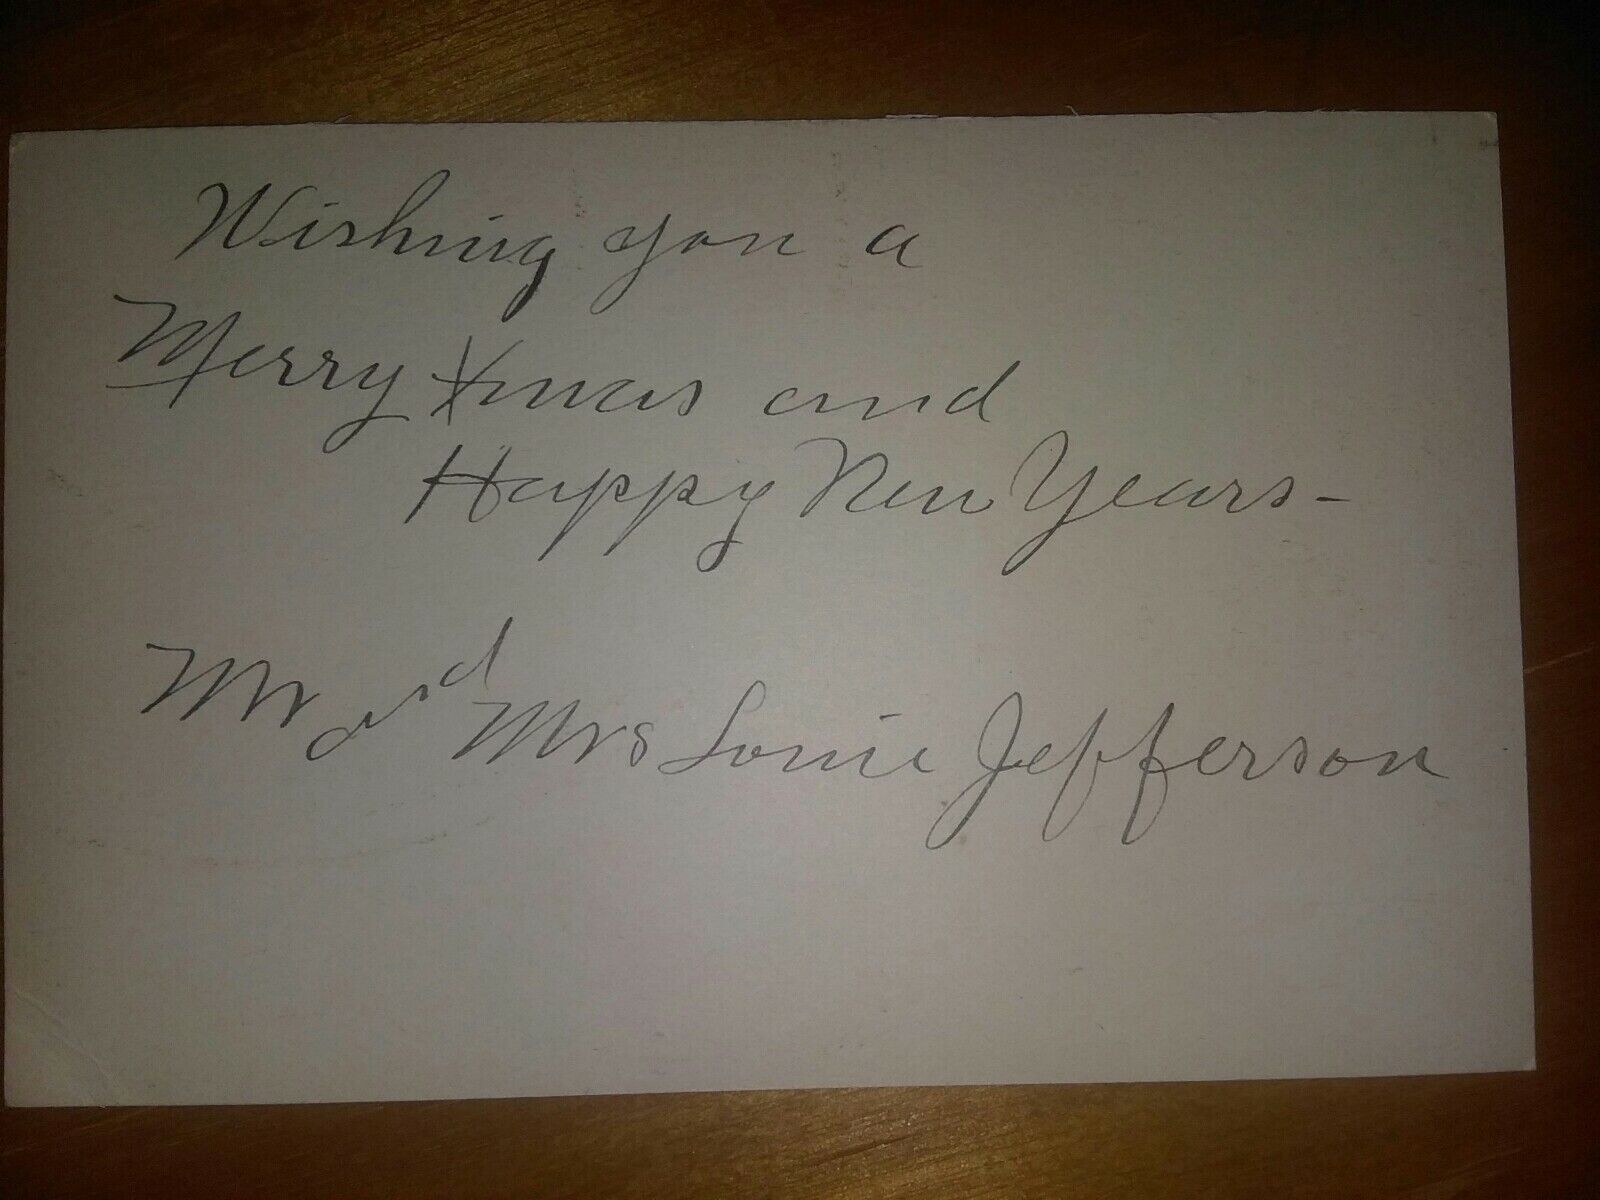 Wishing you a
Merry Xmas and
Happy New Years-
Mr and Mrs Louie Jefferson